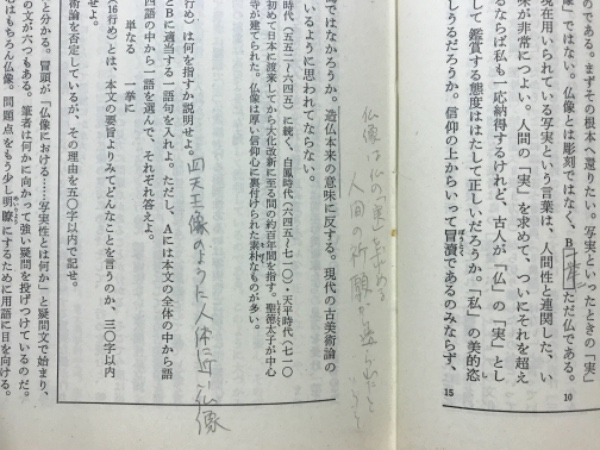 のである。まずその根本へ還りたい。写実といったときの「実」
像」ではない。仏像とは彫刻ではなく、Bただ仏である。
現在用いられている写実という言葉は、人間性と連関した、い
味が非常につよい。人間の「実」を求めて、ついにそれを超え
るならば私も一応納得するけれど、古人が「仏」の「実」とし
して鑑賞する態度ははたして正しいだろうか。「私」の美的恣
しうるだろうか。信仰の上からいって冒瀆であるのみならず、
10
15
ぼうとく
仏像は仏の「実」を求める
人間の祈願が
ではなかろうか。造仏本来の意味に反する。現代の古美術論の
いるように思われてならない。
時代(五五二〜六四五)に続く、白鳳時代(六四五〜七一〇)・天平時代(七一〇
初めて日本に渡来してから大化改新に至る間の約百年間を指す。聖徳太子が中心
寺が建てられた。仏像は厚い信仰心に裏付けられた素朴なものが多い。
行め)は何を指すか説明せよ。
四天王像のように人体に近い仏像
とBに適当する一語句を入れよ。ただし、Aには本文の全体の中から語
四語の中から一語を選んで、それぞれ答えよ。
単なる 一挙に
16行め)とは、本文の要旨よりみてどんなことを言うのか、三〇字以内
術論を否定しているが、その理由を五〇字以内で記せ。
と分かる。冒頭が「仏像における……写実性とは何か」と疑問文で始まり、
の文が六つもある。筆者は何かに向かって強い疑問を投げつけているのだ。
心はもちろん仏像。問題点をもう少し明瞭にするために用語に目を向ける。
めいりょう